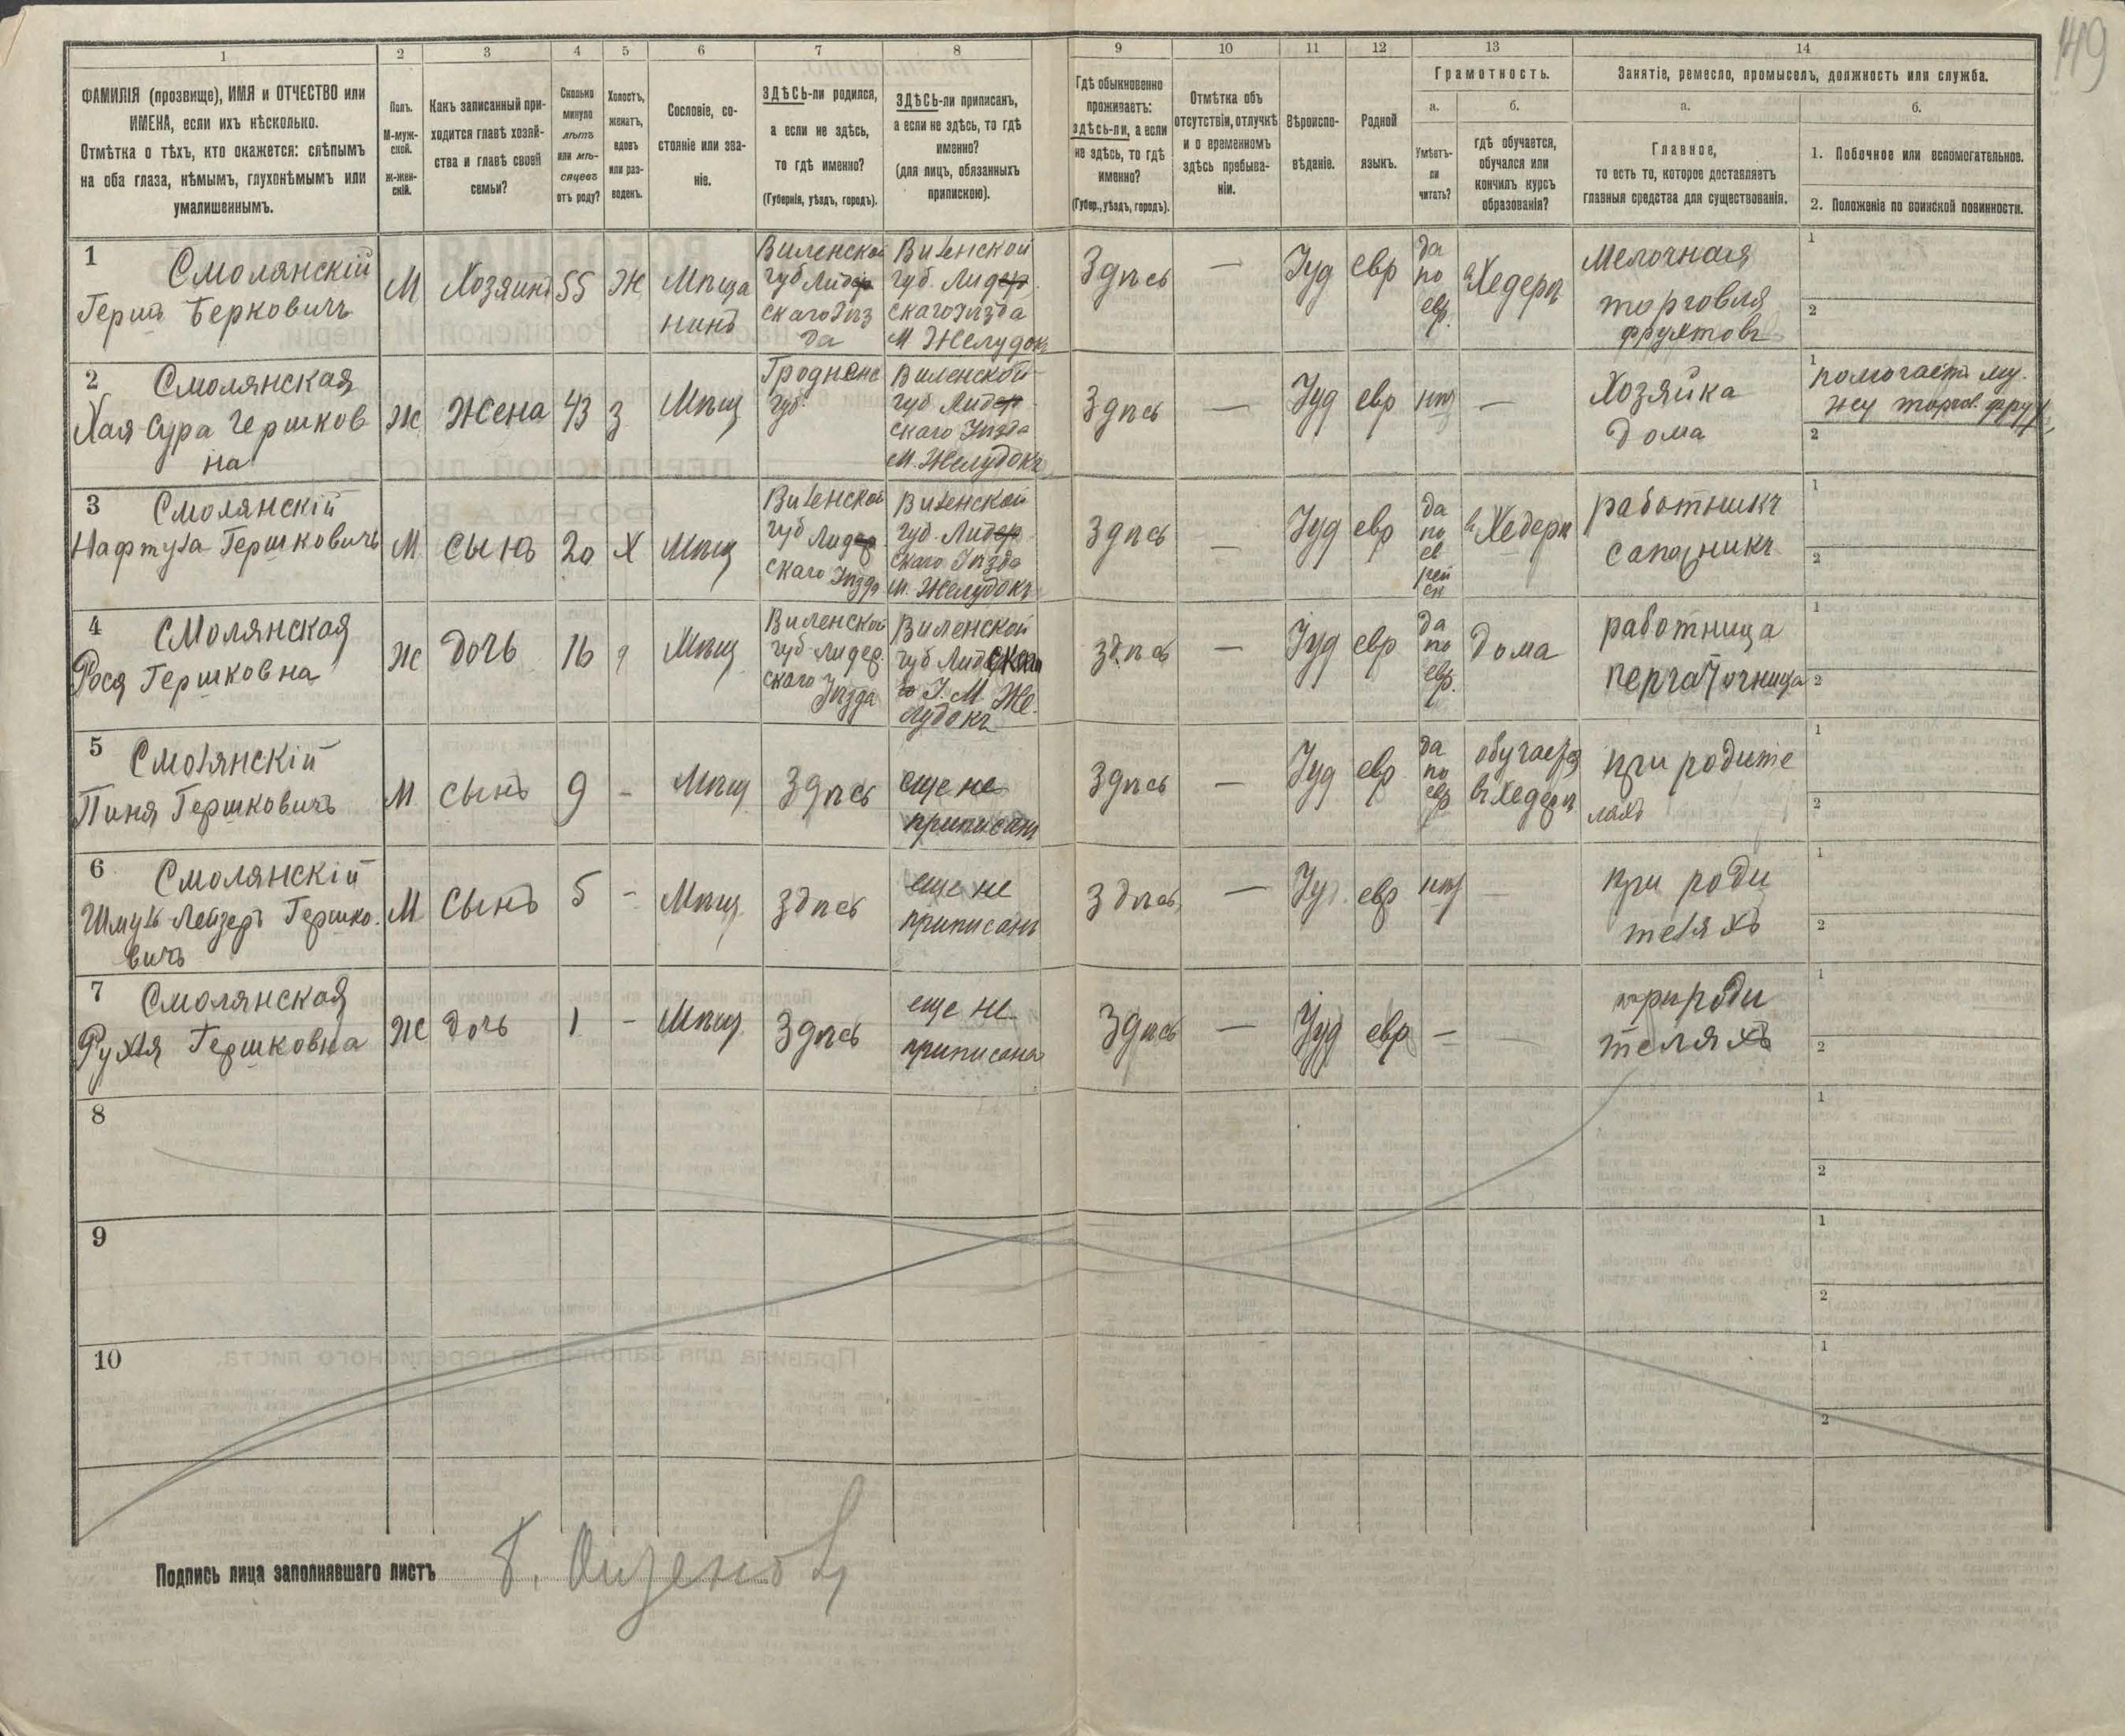 149
1
2
3
4
5
6
7
8
9
10
11
12
13
14
ФАМИЛІЯ (прозвище), ИМЯ и ОТЧЕСТВО или
ИМЕНА, если ихъ нѣсколько.
Отмѣтка о тѣхъ, кто окажется: слѣпымъ
на оба глаза, нѣмымъ, глухонѣмымъ или
умалишеннымъ.
Полъ.
М-муж-
ской.
ж-жен-
скій.
Какъ записанный при-
ходится главѣ хозяй-
ства и главѣ своей
семьи?
Сколько
минуло
лѣтъ
или мѣ-
сяцевъ
отъ роду?
Холостъ,
женатъ,
вдовъ
или раз-
веденъ.
Сословіе, со-
стояніе или зва-
ніе.
ЗДѢСЬ-ли родился,
а если не здѣсь,
то гдѣ именно?
(Губернія, уѣздъ, городъ).
ЗДѢСЬ-ли приписанъ,
а если не здѣсь, то гдѣ
именно?
(для лицъ, обязанныхъ
припискою).
Гдѣ обыкновенно
проживаетъ:
здѣсь-ли, а если
не здѣсь, то гдѣ
именно?
(Губер., уѣздъ, городъ).
Отмѣтка объ
отсутствіи, отлучкѣ
и о временномъ
здѣсь пребыва-
ніи.
Вѣроиспо-
вѣданіе.
Родной
языкъ.
Грамотность.
а.
Умѣетъ-
ли
читать?
б.
гдѣ обучается,
обучался или
кончилъ курсъ
образованія?
Занятіе, ремесло, промыселъ, должность или служба.
а.
Главное,
то есть то, которое доставляетъ
главныя средства для существованія.
б.
1. Побочное или вспомогательное.
2. Положеніе по воинской повинности.
1
Смолянскій
Герша Берковичъ
М
Хозяинъ
55
Ж
Мѣща
нинъ
Виленской
губ Лидер
скаго Уѣз
да
Виленской
губ. Лидер
скаго Уѣзда
М Желудокъ
Здѣсь
—
Іуд
евр
да
по
евр.
въ Хедерѣ
Мелочная
торговля
фруктовъ
1
2
2
Смолянская
Хая Сура Гершков
на
Ж
Жена
43
З
Мѣщ
Гродненс
губ.
Виленской
губ Лидер
скаго Уѣзда
М. Желудокъ
Здѣсь
—
Іуд
евр
нѣт
—
Хозяйка
дома
1
помогаетъ му.
жу торгов. фрук,
2
3
Смолянскій
Нафтула Гершковичъ
М
Сынъ
20
Х
Мѣщ
Виленской
губ Лидер
скаго Уѣзда
Виленской
губ. Лидер
скаго Уѣзда
М. Желудокъ
Здѣсь
—
Іуд
евр
да
по
ев
рей
ск
въ Хедерѣ
работникъ
сапожникъ
1
2
4
Смолянская
Рося Гершковна
Ж
Дочь
16
Мѣщ
Виленской
губ Лидер.
скаго
Уѣзда
Виленской
губ Лидскаго
У. М. Же.
лудокъ
здѣсь
—
Іуд
евр
да
по
евр.
Дома
работница
перчаточница
1
2
5
Смолянскій
Пиня Гершковичъ
М
Сынъ
9
-
Мѣщ
Здѣсь
еще не
приписанъ
Здѣсь
—
Іуд
евр
да
по
евр
обучается
въ Хедерѣ
при родите
ляхъ
1
2
6
Смолянскій
Шмуль Лейзеръ Гершко.
вичъ
М
Сынъ
5
-
Мѣщ
здѣсь
еще не
приписанъ
Здѣсь
—
Іуд.
евр
нѣт
—
при роди
теляхъ
1
2
7
Смолянская
Рухля Гершковна
Ж
дочь
1
-
Мѣщ
Здѣсь
еще не
приписана
Здѣсь
—
Іуд
евр
—
—
при роди
теляхъ
1
2
8
1
2
9
1
2
10
1
2
Подпись лица заполнявшаго листъ